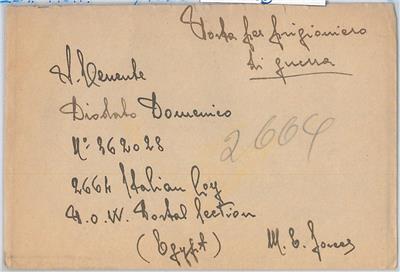 Posta per prigioniero
di guerra
S. Tenente
Diodato Domenico
N: 362028
2664
2664 Italian Coy
P.O.W. Postal Section
(Egypt) M. E. Forces